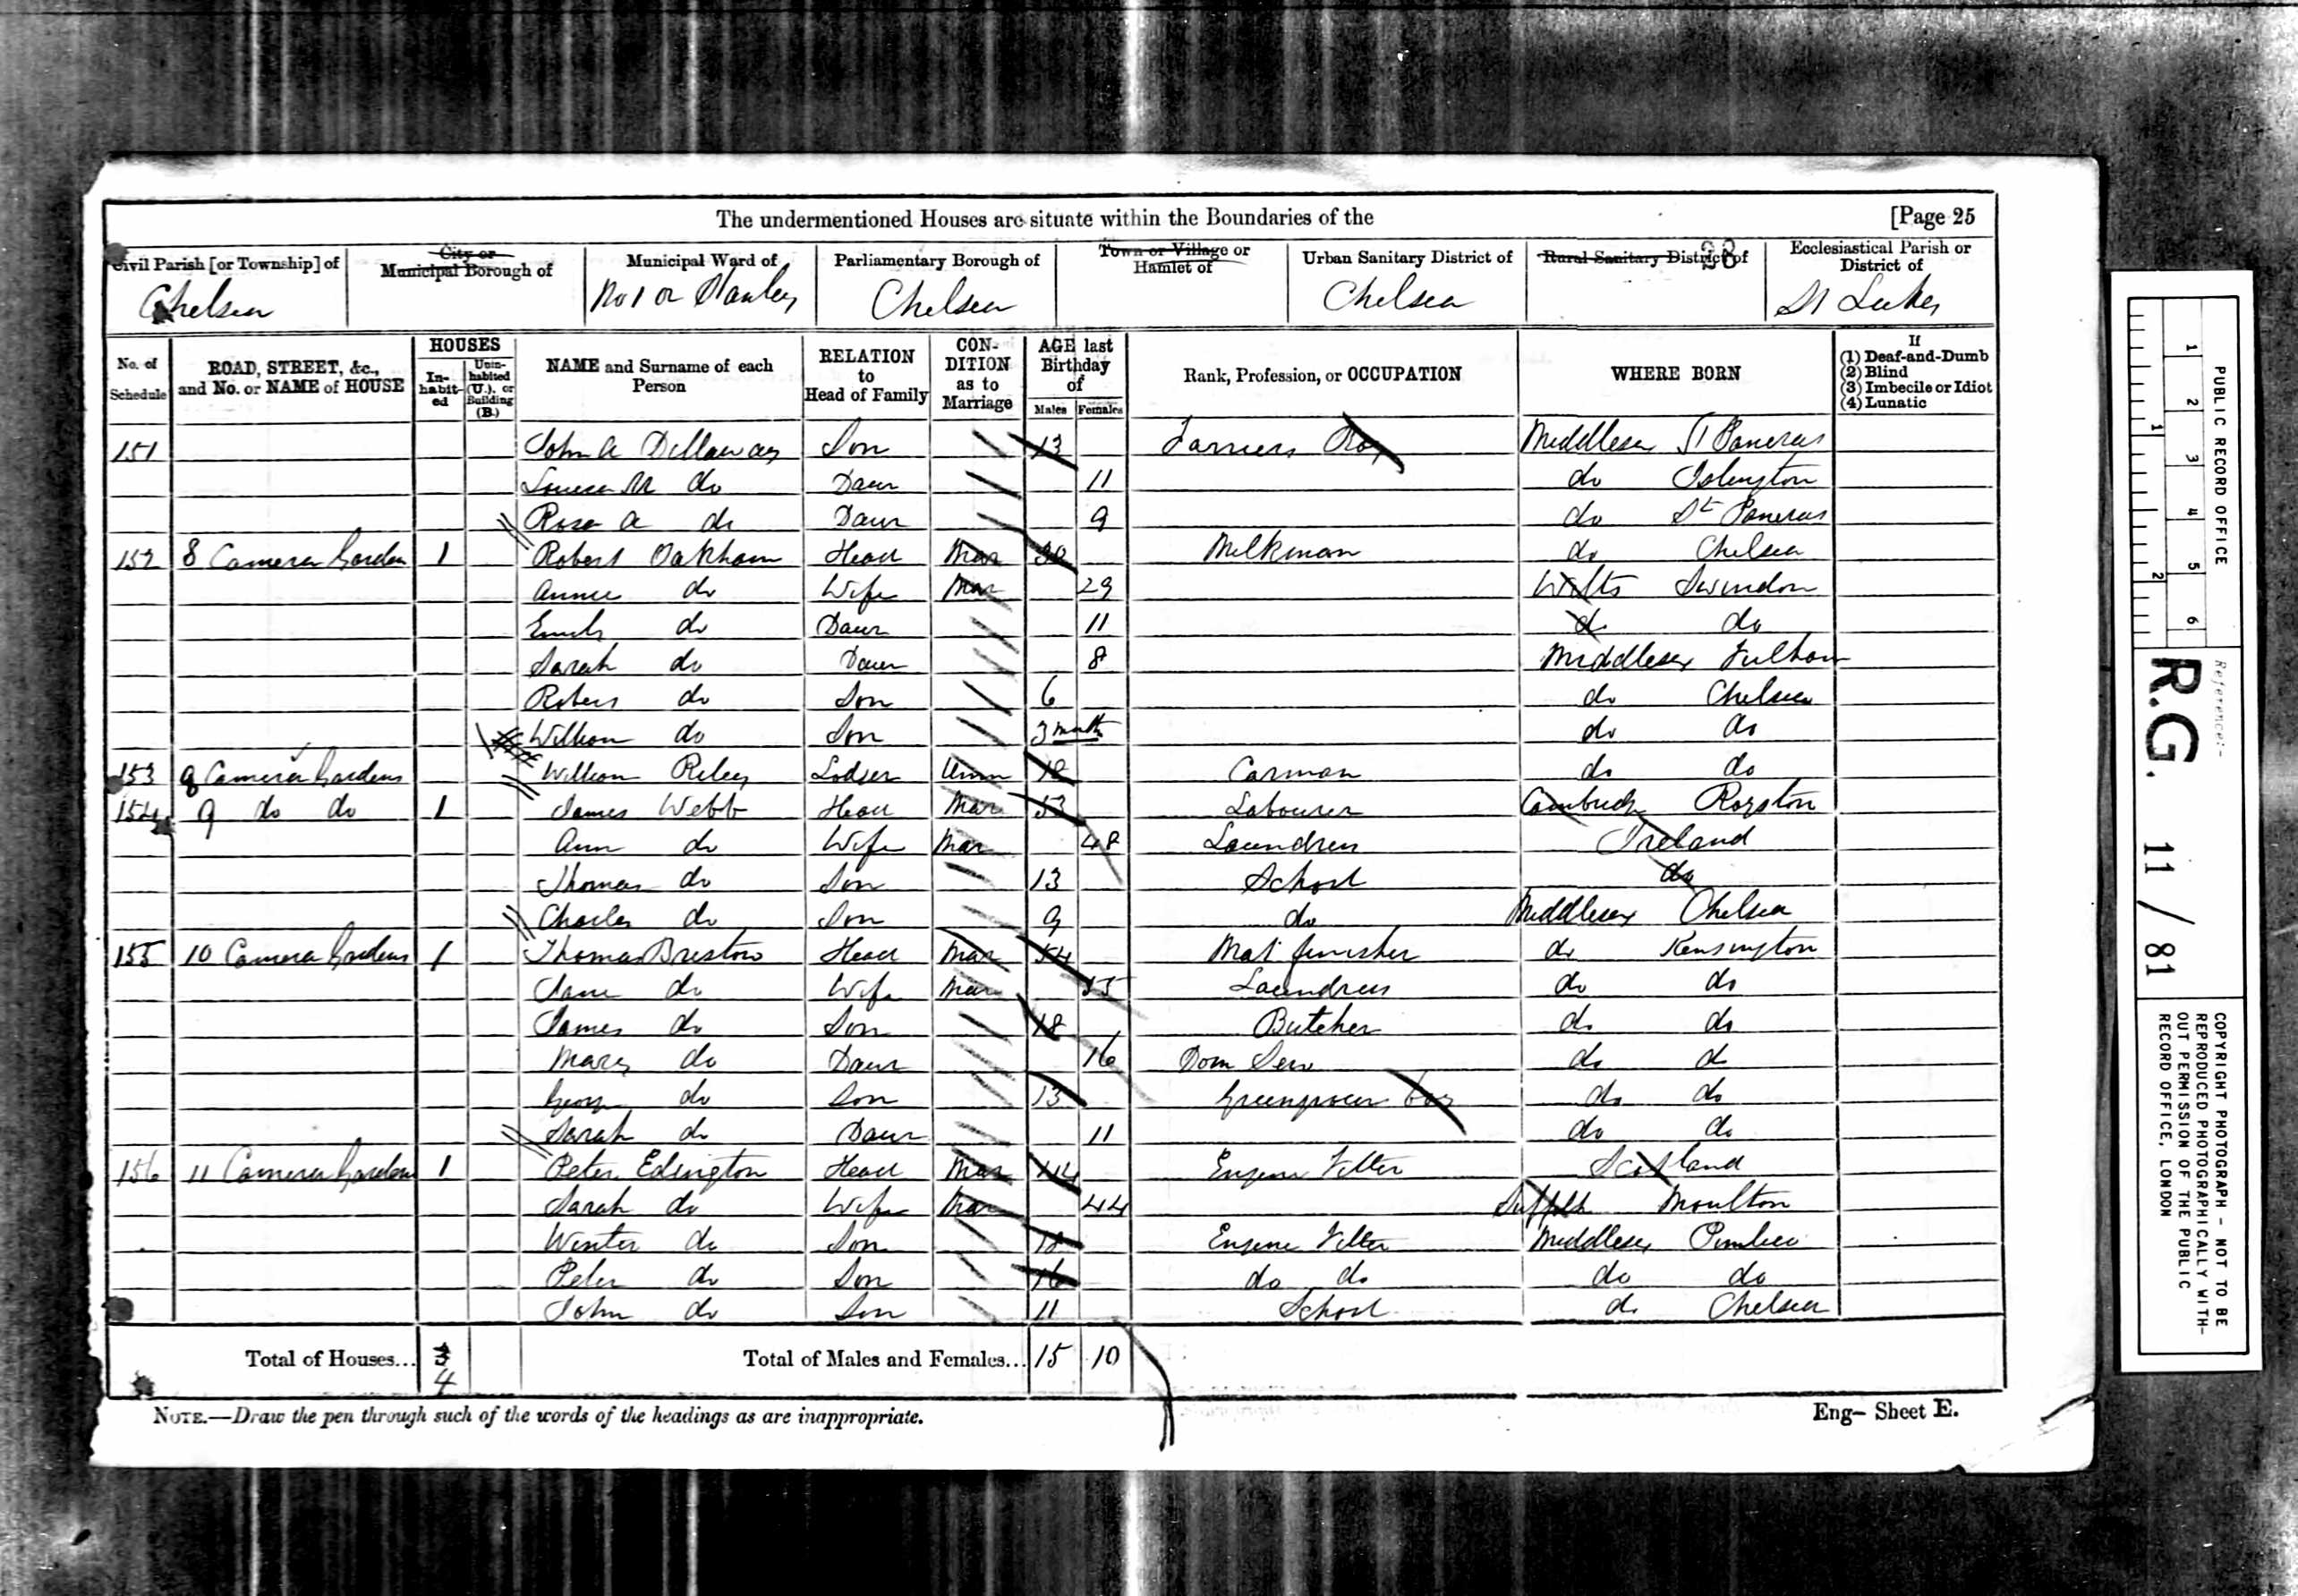 The undermentioned Houses are situate within the Boundaries of the [Page 25
Civil Parish [or Township] of
Chelsea
City or Municipal Borough of
Municipal Ward of
No 1 or Stanley
Parliamentary Borough of
Chelsea
Town or Village or Hamlet of
Urban Sanitary District of
Chelsea
Rural Sanitary District of
28
Ecclesiastical Parish or District of
St Lukes
No. of Schedule
ROAD, STREET, &c., and No. or NAME of HOUSE
HOUSES
In-habit-ed
Unin-habited (U.), or Building (B.)
NAME and Surname of each Person
RELATION to Head of Family
CON-DITION as to Marriage
AGE last Birthday of
Males Females
Rank, Profession, or OCCUPATION
WHERE BORN
If
(1) Deaf-and-Dumb
(2) Blind
(3) Imbecile or Idiot
(4) Lunatic
151 John A Dillaway Son 13 Farriers Boy Middlesex St Pancras
Louisa M do Daur 11 do Islington
Rosa A do Daur 9 do St Pancras
152 8 Camera Garden 1 Robert Oakham Head Mar 30 Milkman do Chelsea
Annie do Wife Mar 29 Wilts Swindon
Emily do Daur 11 do do
Sarah do Daur 8 Middlesex Fulham
Robert do Son 6 do Chelsea
William do Son 3 month do do
153 9 Camera Gardens William Riley Lodger Unm 18 Carman do do
154 9 do do 1 James Webb Head Mar 53 Labourer Cambridge Royston
Ann do Wife Mar 48 Laundress Ireland
Thomas do Son 13 School do
Charles do Son 9 do Middlesex Chelsea
155 10 Camera Gardens 1 Thomas Breston Head Mar 54 Mat finisher do Kensington
Jane do Wife Mar 55 Laundress do do
James do Son 18 Butcher do do
Mary do Daur 16 Dom Serv do do
George do Son 13 Greengrocers boy do do
Sarah do Daur 11 do do
156 11 Camera Gardens 1 Peter Edington Head Mar 44 Engine Fitter Scotland
Sarah do Wife Mar 44 Suffolk Moulton
Winter do Son 18 Engine Fitter Middlesex Pimlico
Peter do Son 16 do do do do
John do Son 11 School do Chelsea
Total of Houses... 3 4 Total of Males and Females... 15 10
NOTE.—Draw the pen through such of the words of the headings as are inappropriate.
Eng— Sheet E.
PUBLIC RECORD OFFICE
1 2 3 4 5 6
1 2
Reference:-
R.G. 11 / 81
COPYRIGHT PHOTOGRAPH - NOT TO BE
REPRODUCED PHOTOGRAPHICALLY WITH-
OUT PERMISSION OF THE PUBLIC
RECORD OFFICE, LONDON